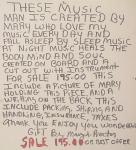 THESE MUSIC
MAN IS CREATED BY
MARY WHO LOVE MY
MUSIC EVERY DAY AND
FALL ASLEEP BY SLEEP MUSIC
AT NIGHT MUSIC HEALS THE
BODY MIND AND SOUL
CREATED ON BOARD AND A
CUT OUT WITH INSTRUMENT
FOR SALE 195.00 THIS
INCLUDE A PICTURE OF MARY
HOLDING THIS PIECE AND A
WRITING ON THE BACK. THIS
INCLUDE PACKING, SHIPPING AND
HANDLING, INSURANCE, TAXES
THANK YOU ENJOY YOU WONDERFUL
GIFT BY Mary
SALE 195.00 OR BEST OFFER